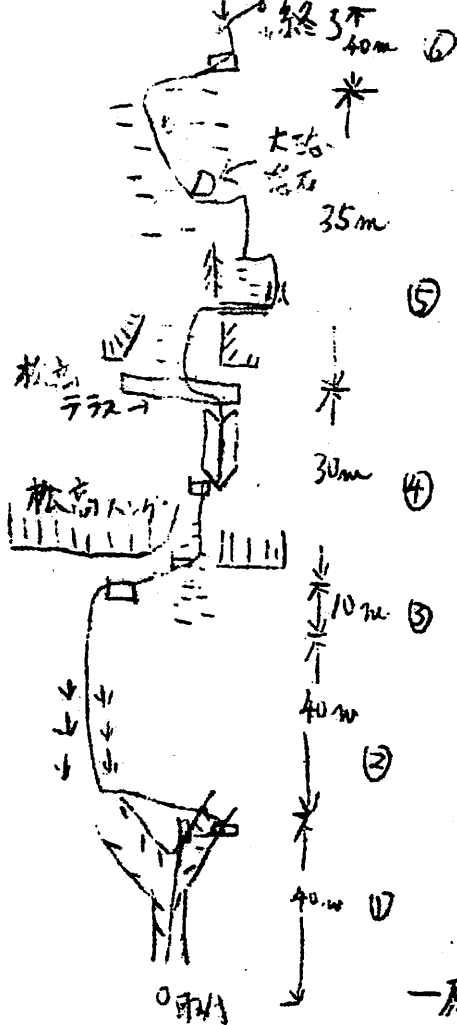 終了点
40m ⑥
35m
⑤
松高
テラス→
30m ④
松高ハング
10m ③
40m
②
40m ①
取付